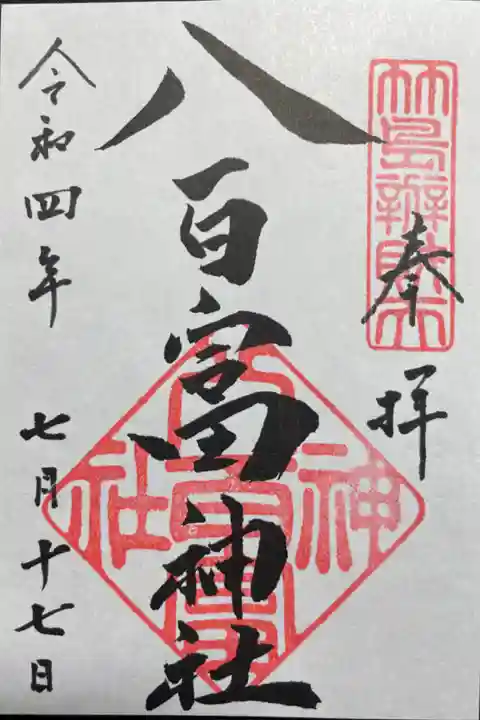 奉拝
竹島辨財天
八百富神社
八百富神社
令和四年 七月十七日